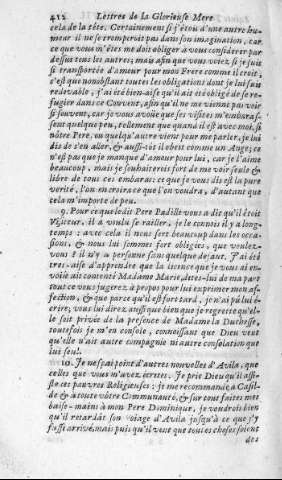 412 Lettres de la Glorieuse Mere
cela de la tête. Certainement si j'étoi d'une autre hu-
meur il ne se tromperoit pas dans son imagination, car
ce que vous m'êtes me doit obliger à vous considerer par
dessus tous les autres; mais afin que vous voiez si je suis
si transportée d'amour pour mon Frere comme il croit,
c'est que nonobstant toutes les obligations dont je lui suis
redevable, j'ai été bien-aise qu'il ait été obligé de se re-
fugier dans ce Couvent, afin qu'il ne me vienne pas voir
si souvent, car je vous avoüe que ses visites m'embaras-
sent quelque peu, tellement que quand il est avec moi, si
nôtre Pere, ou quelqu'autre vient pour me parler, je lui
dis de s'en aller, & aussi-tôt il obeït comme un Ange; ce
n'est pas que je manque d'amour pour lui, car je l'aime
beaucoup, mais je souhaiterois fort de me voir seule &
libre de tous ces embaras: ce que je vous dis est la pure
verité, l'on en croira ce que l'on voudra, d'autant que
cela m'importe de peu.
9. Pour ce que le dit Pere Padille vous a dis qu'il êtoit
Visiteur, il a voulu se railler, je le connois il y a long-
temps: avec cela il nous sert beaucoup dans les occa-
sions, & nous lui sommes fort obligées, que voulez-
vous? il n'y a personne sans quelque defaut. J'ai été
tres-aise d'apprendre que la licence que je vous ai en-
voiée ait contenté Madame Marie, dites-lui de ma part
tout ce que vous jugerez à propos pour lui exprimer mon af-
fection, & que parce qu'il est fort tard, je n'ai pû lui é-
crire, vous lui direz aussi que bien que je regrette qu'el-
le soit privée de la presence de Madame la Duchesse,
toutefois je m'en console, connoissant que Dieu veut
qu'elle n'ait autre compagnie ni autre consolation que
lui seul.
10. Je ne sçai point d'autres nouvelles d'Avila, que
celles que vous m'avez écrites. Je prie Dieu qu'il assi-
ste ces pauvres Religieuses: je me recommande à Casil-
de & à toute vôtre Communauté, & sur tout faites mes
baise-mains à mon Pere Dominique, je vendrois bien
qu'il retardât son voiage d'Avila jusqu'à ce que j'y
fusse arrivé, mais puis qu'il veut que toutes choses soient
des